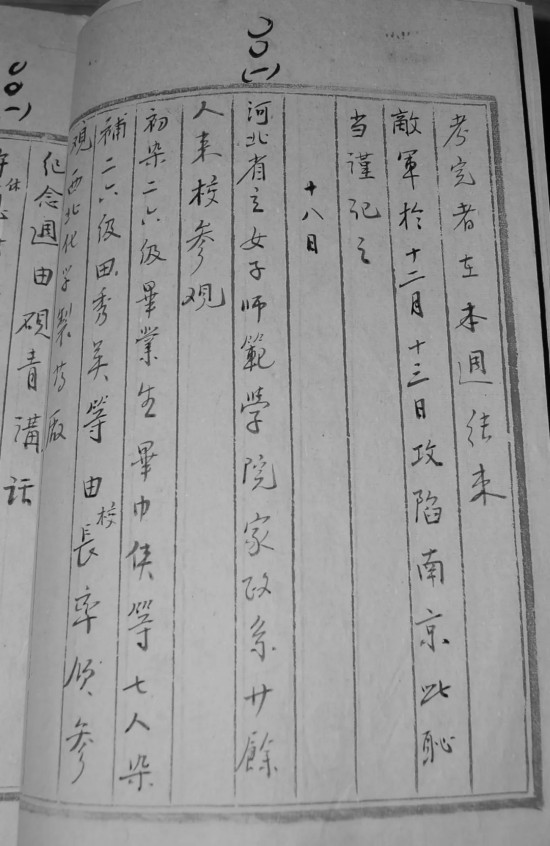 〇〇一
考完者在本週結束
敵軍於十二月十三日攻陷南京此恥
当謹記之
十八日
河北省立女子師範學院家政系廿餘
人来校参观
初染二六級畢業生畢巾俠等七人染
補二六級田秀英等由校長率領参
观西北化学製药廠
〇〇一
纪念週由硯青講話